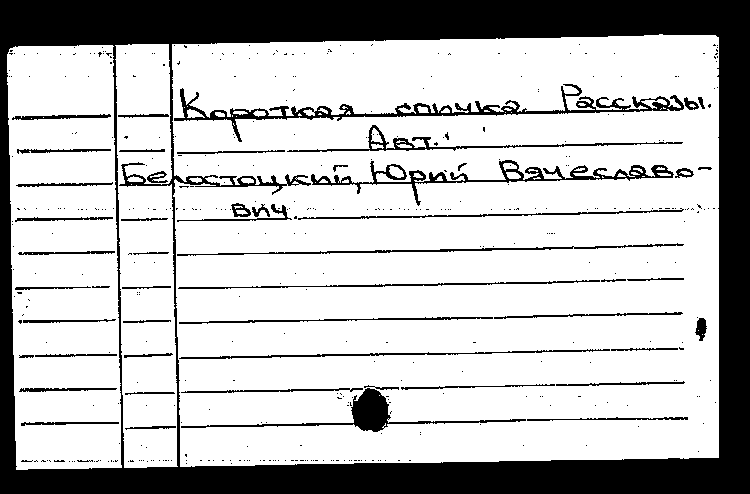 Короткая спичка. Рассказы.
Авт.:
Белостоцкий, Юрий Вячеславо-
вич.